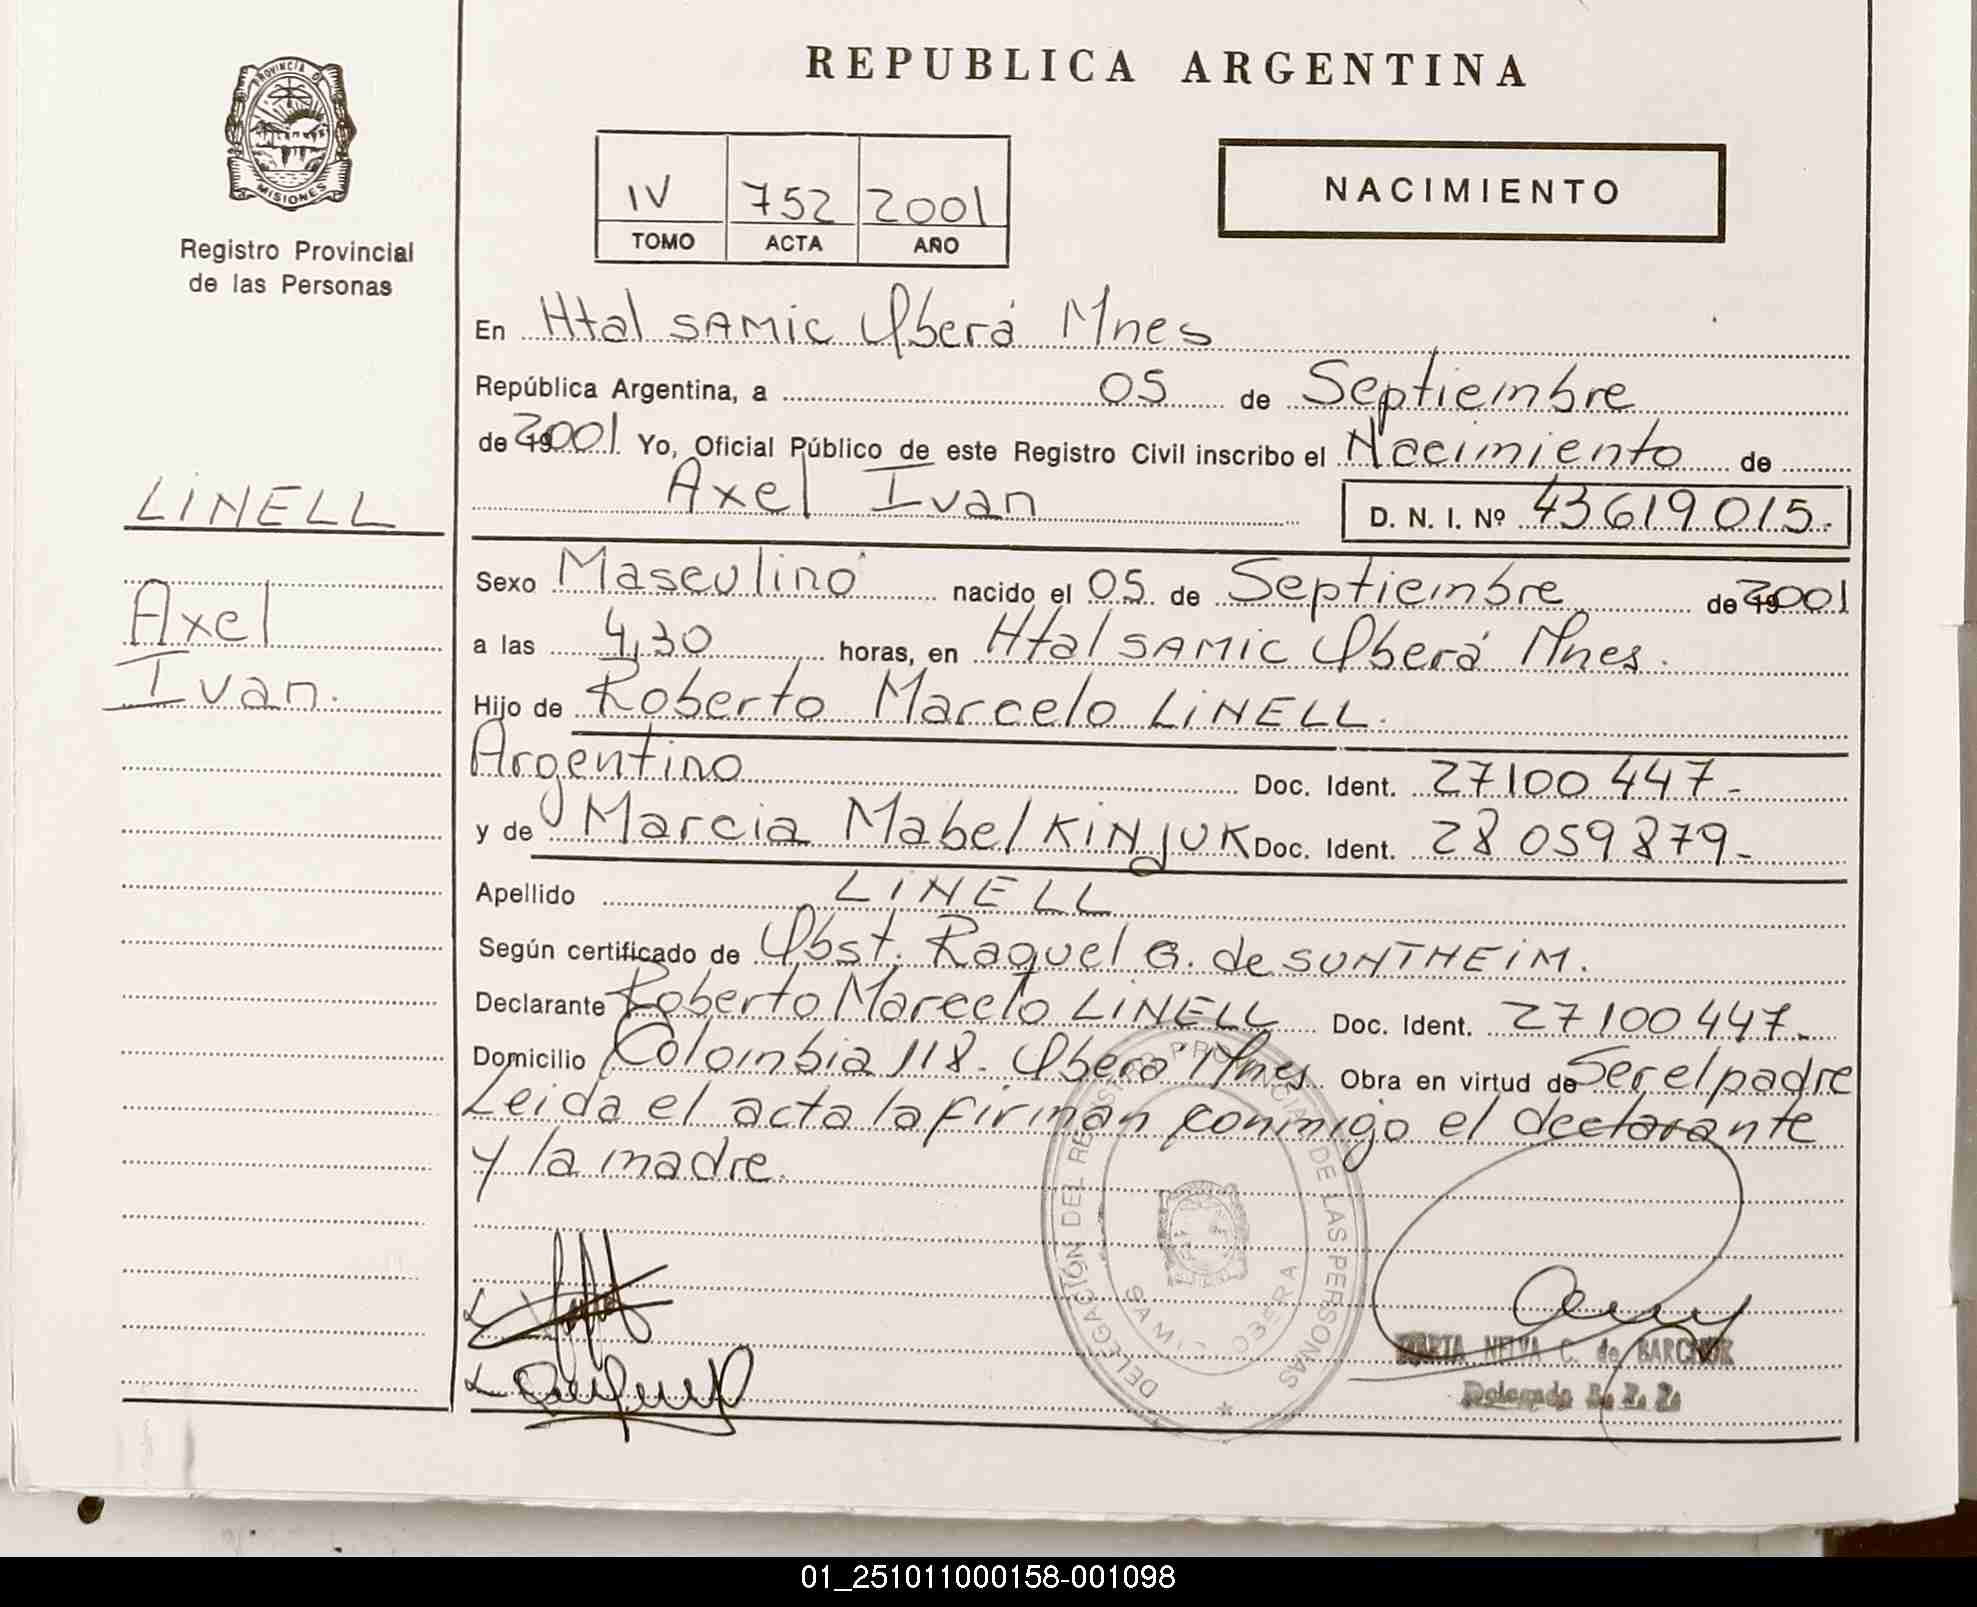 REPUBLICA ARGENTINA
PROVINCIA D
MISIONES
Registro Provincial
de las Personas
IV 752 2001
TOMO ACTA AÑO
NACIMIENTO
En Htal SAMIC Oberá Mnes
República Argentina, a 05 de Septiembre
de 2001 Yo, Oficial Público de este Registro Civil inscribo el Nacimiento de
Axel Ivan D. N. I. Nº 43619015.-
LINELL
Axel
Ivan.
Sexo Masculino nacido el 05 de Septiembre de 2001
a las 4,30 horas, en Htal SAMIC Oberá Mnes.
Hijo de Roberto Marcelo LINELL.
Argentino Doc. Ident. 27100447-
y de Marcia Mabel KINJUK Doc. Ident. 28059879-
Apellido LINELL
Según certificado de Obst. Raquel G. de SUNTHEIM.
Declarante Roberto Marcelo LINELL Doc. Ident. 27100447-
Domicilio Colombia 118. Oberá Mnes Obra en virtud de Ser el padre
Leida el acta la firman conmigo el declarante
y la madre.
DELEGACIÓN DEL REGISTRO PROVINCIAL DE LAS PERSONAS
SAMIC OBERA
NELVA C. de BARCHUK
Delegada
01_251011000158-001098